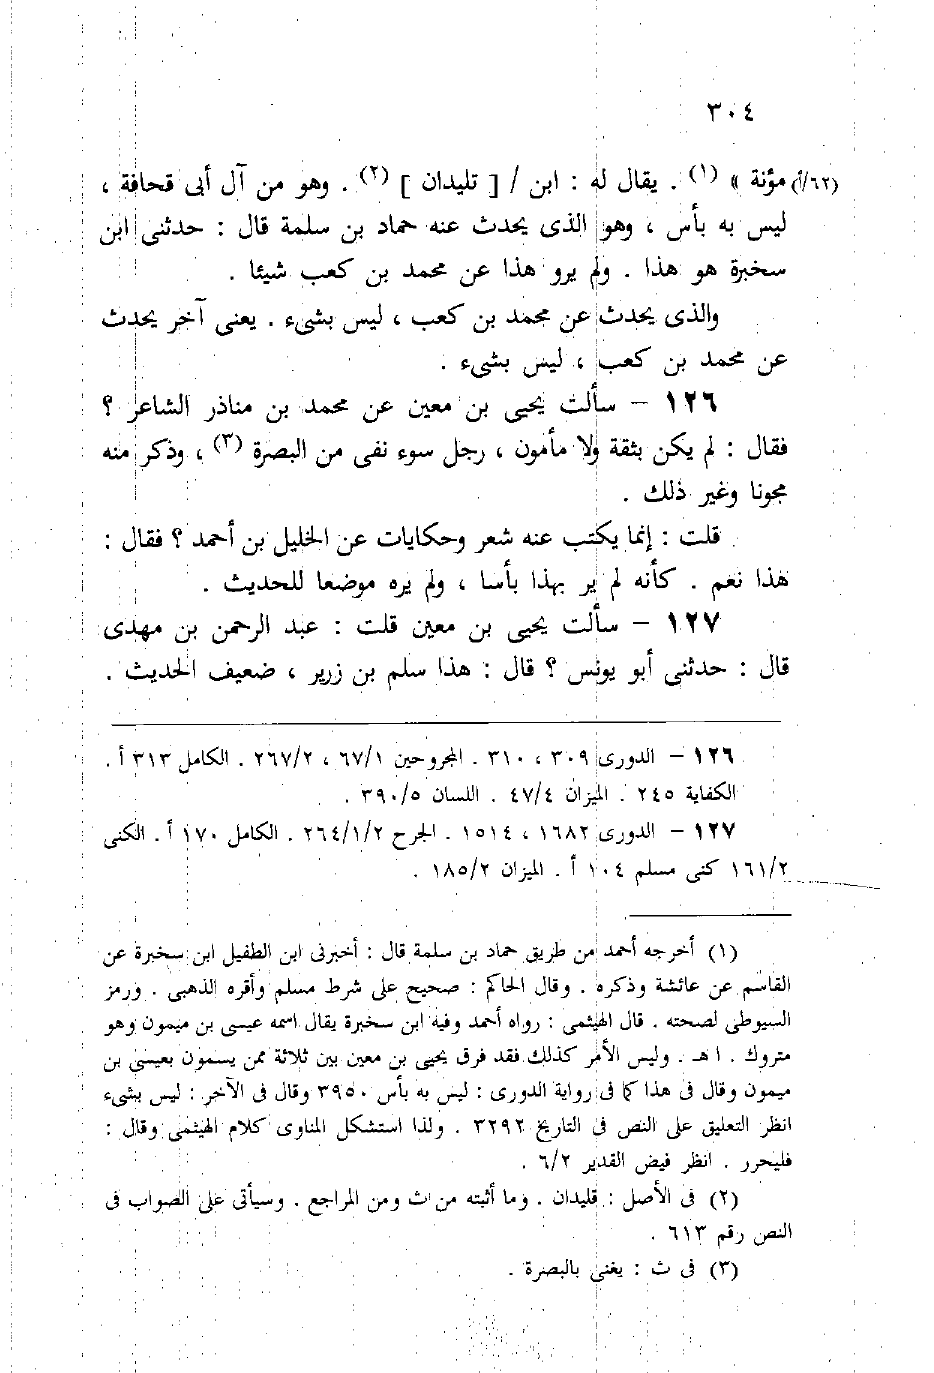 ٣٠٤
(٦٢/أ) مؤنة » (١) . يقال له : ابن / [ تليدان ] (٢) . وهو من آل أبى قحافة ،
ليس به بأس ، وهو الذى يحدث عنه حماد بن سلمة قال : حدثنى ابن
سخبرة هو هذا . ولم يرو هذا عن محمد بن كعب شيئا .
والذى يحدث عن محمد بن كعب ، ليس بشىء . يعنى آخر يحدث
عن محمد بن كعب ، ليس بشىء .
١٢٦ – سألت يحيى بن معين عن محمد بن مناذر الشاعر ؟
فقال : لم يكن بثقة ولا مأمون ، رجل سوء نفى من البصرة (٣) ، وذكر منه
مجونا وغير ذلك .
قلت : إنما يكتب عنه شعر وحكايات عن الخليل بن أحمد ؟ فقال :
هذا نعم . كأنه لم ير بهذا بأسا ، ولم يره موضعا للحديث .
١٢٧ – سألت يحيى بن معين قلت : عبد الرحمن بن مهدى
قال : حدثنى أبو يونس ؟ قال : هذا سلم بن زرير ، ضعيف الحديث .
١٢٦ – الدورى ٣٠٩ ، ٣١٠ . المجروحين ٦٧/١ ، ٢٦٧/٢ . الكامل ٣١٣ أ .
الكفاية ٢٤٥ . الميزان ٤٧/٤ . اللسان ٣٩٠/٥ .
١٢٧ – الدورى ١٦٨٢ ، ١٥١٤ . الجرح ٢٦٤/١/٢ . الكامل ١٧٠ أ . الكنى
١٦١/٢ كنى مسلم ١٠٤ أ . الميزان ١٨٥/٢ .
(١) أخرجه أحمد من طريق حماد بن سلمة قال : أخبرنى ابن الطفيل ابن سخبرة عن
القاسم عن عائشة وذكره . وقال الحاكم : صحيح على شرط مسلم وأقره الذهبى . ورمز
السيوطى لصحته . قال الهيثمى : رواه أحمد وفيه ابن سخبرة يقال اسمه عيسى بن ميمون وهو
متروك . ا هـ . وليس الأمر كذلك فقد فرق يحيى بن معين بين ثلاثة ممن يسمون بعيسى بن
ميمون وقال فى هذا كما فى رواية الدورى : ليس به بأس ٣٩٥٠ وقال فى الآخر : ليس بشىء
انظر التعليق على النص فى التاريخ ٣٢٩٢ . ولذا استشكل المناوى كلام الهيثمى وقال :
فليحرر . انظر فيض القدير ٦/٢ .
(٢) فى الأصل : قليدان . وما أثبته من ث ومن المراجع . وسيأتى على الصواب فى
النص رقم ٦١٣ .
(٣) فى ث : يغنى بالبصرة .